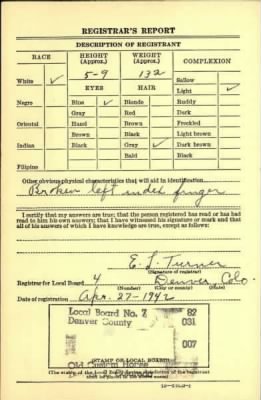 REGISTRAR'S REPORT
DESCRIPTION OF REGISTRANT
RACE HEIGHT (Approx.) WEIGHT (Approx.) COMPLEXION
5-9 132
White ✓ Sallow
EYES HAIR Light ✓
Negro Blue ✓ Blonde Ruddy
Gray Red Dark
Oriental Hazel Brown Freckled
Brown Black Light brown
Indian Black Gray ✓ Dark brown
Bald Black
Filipino
Other obvious physical characteristics that will aid in identification
Broken left index finger
I certify that my answers are true; that the person registered has read or has had
read to him his own answers; that I have witnessed his signature or mark and that
all of his answers of which I have knowledge are true, except as follows:
E. L. Turner
(Signature of registrar)
Registrar for Local Board 4 Denver Colo
(Number) (City or county) (State)
Date of registration Apr. 27-1942
Local Board No. 7 82
Denver County 031
007
(STAMP OF LOCAL BOARD)
Old Custom House
(The stamp of the Local Board having jurisdiction of the registrant
shall be placed in the above space)